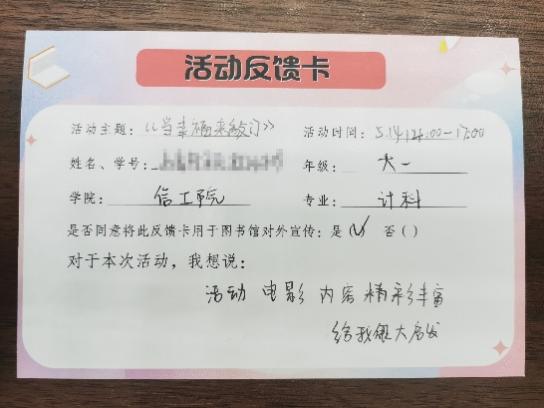 活动反馈卡
活动主题：《当幸福来敲门》
活动时间：5.14 14:00-17:00
姓名、学号：
年级：大一
学院：信工学院
专业：计科
是否同意将此反馈卡用于图书馆对外宣传：是(√) 否( )
对于本次活动，我想说：
活动 电影 内容 精彩丰富
给我很大启发